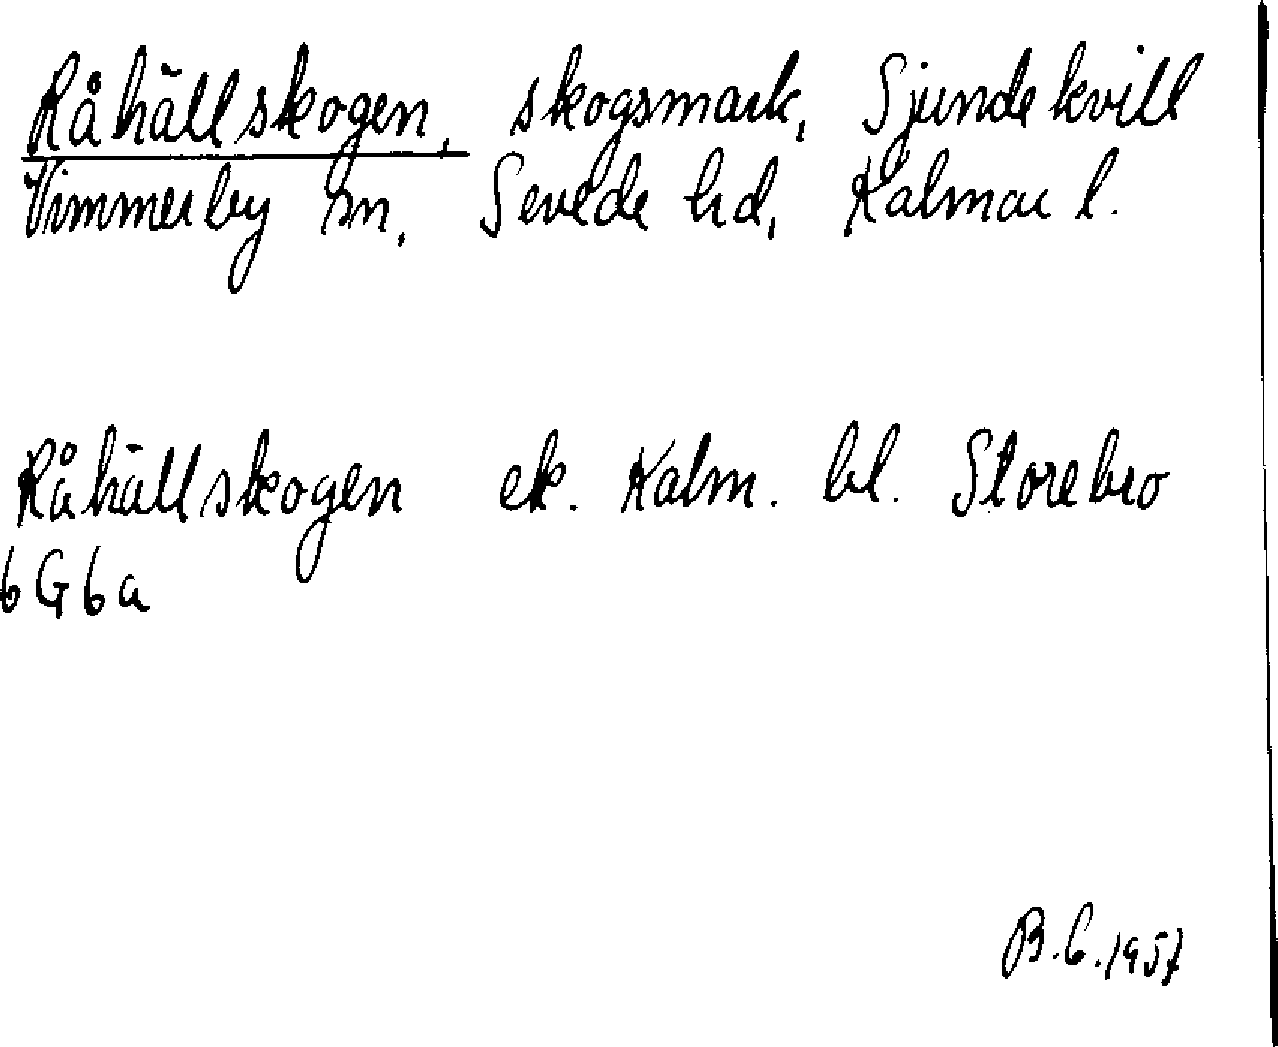 Råhällskogen, skogsmark, Sjundekvill
Vimmerby sn, Sevede hd, Kalmar l.
Råhällskogen ek. Kalm. bl. Storebro
6G6a
B.C. 1957